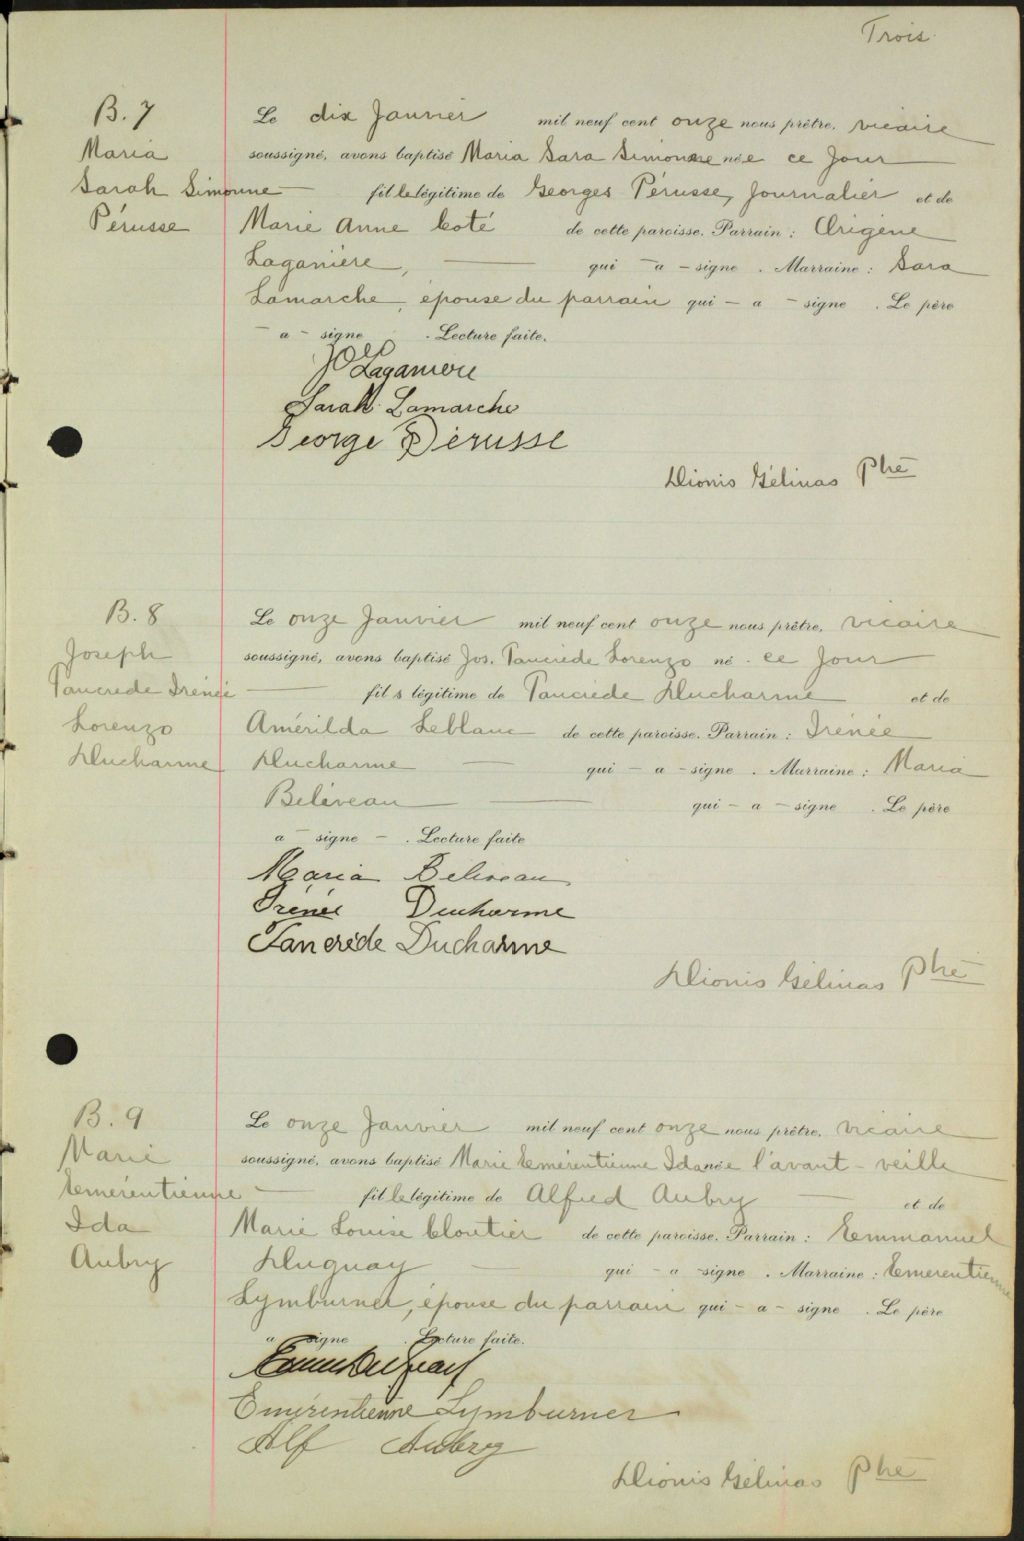 Trois
B. 7
Maria
Sarah Simonne
Pérusse
Le dix Janvier mil neuf cent onze nous prêtre, vicaire
soussigné, avons baptisé Maria Sara Simonne née ce Jour
fille légitime de Georges Pérusse, Journalier et de
Marie Anne Coté de cette paroisse. Parrain : Origène
Laganière, qui - a - signé . Marraine : Sara
Lamarche, épouse du parrain qui - a - signé . Le père
- a - signé . Lecture faite.
Laganière
Sarah Lamarche
George Pérusse
Dionis Gélinas Ptre
B. 8
Joseph
Tancrède Irénée
Lorenzo
Ducharme
Le onze Janvier mil neuf cent onze nous prêtre, vicaire
soussigné, avons baptisé Jos. Tancrède Lorenzo né ce Jour
fils légitime de Tancrède Ducharme et de
Amérilda Leblanc de cette paroisse. Parrain : Irénée
Ducharme qui - a - signé . Marraine : Maria
Beliveau qui - a - signé . Le père
a - signé - . Lecture faite
Maria Beliveau
Irénée Ducharme
Tancrède Ducharme
Dionis Gélinas Ptre
B. 9
Marie
Emérentienne
Ida
Aubry
Le onze Janvier mil neuf cent onze nous prêtre, vicaire
soussigné, avons baptisé Marie Emérentienne Ida née l'avant-veille
fille légitime de Alfred Aubry et de
Marie Louise Cloutier de cette paroisse. Parrain : Emmanuel
Duguay qui - a - signé . Marraine : Emerentienne
Lymburner, épouse du parrain qui - a - signé . Le père
a signé . Lecture faite.
Emérentienne Lymburner
Alf Aubry
Dionis Gélinas Ptre